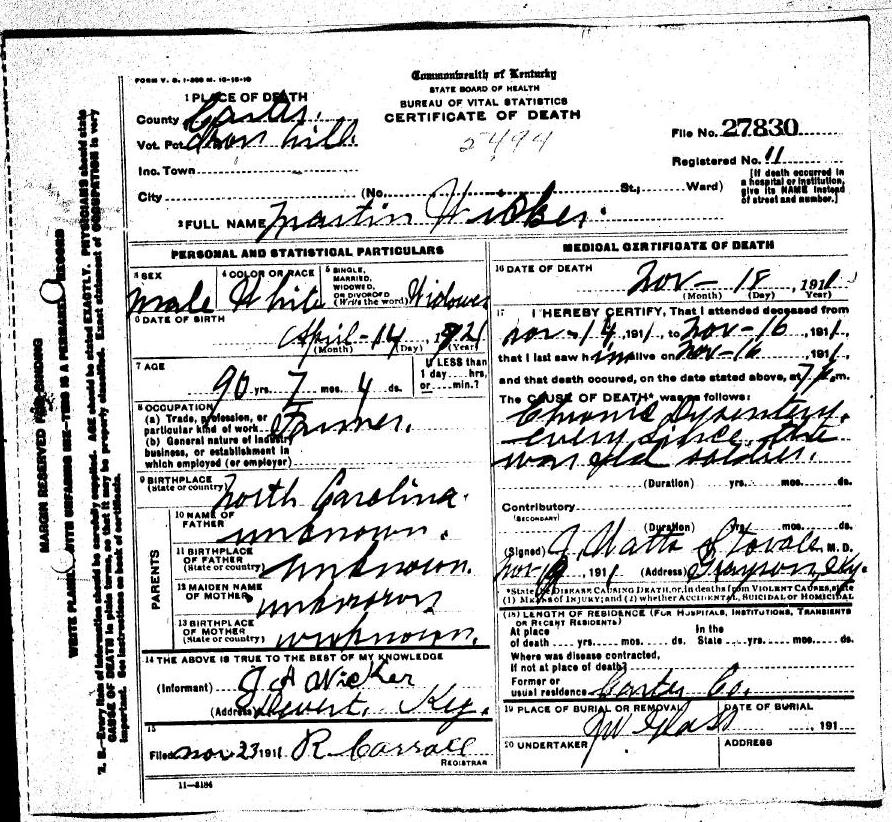 FORM V. S. 1-200 M. 10-15-10
Commonwealth of Kentucky
STATE BOARD OF HEALTH
BUREAU OF VITAL STATISTICS
CERTIFICATE OF DEATH
2494
1 PLACE OF DEATH
County Carter.
Vot. Pct. Iron hill
Inc. Town
City (No. St.; Ward)
File No. 27830
Registered No. 11
[If death occurred in a hospital or institution, give its NAME instead of street and number.]
2 FULL NAME Martin Wicker.
PERSONAL AND STATISTICAL PARTICULARS
3 SEX male
4 COLOR OR RACE White
5 SINGLE, MARRIED, WIDOWED, OR DIVORCED (Write the word) Widower
6 DATE OF BIRTH April - 14, 1821
(Month) (Day) (Year)
7 AGE 90 yrs. 7 mos. 4 ds.
If LESS than 1 day ... hrs. or ... min.?
8 OCCUPATION
(a) Trade, profession, or particular kind of work Farmer.
(b) General nature of industry business, or establishment in which employed (or employer)
9 BIRTHPLACE (State or country) North Carolina.
PARENTS
10 NAME OF FATHER unknown.
11 BIRTHPLACE OF FATHER (State or country) unknown.
12 MAIDEN NAME OF MOTHER unknown
13 BIRTHPLACE OF MOTHER (State or country) unknown.
14 THE ABOVE IS TRUE TO THE BEST OF MY KNOWLEDGE
(Informant) J A Wicker
(Address) Ky.
15
Filed Nov 23 1911 R Carroll
REGISTRAR
11-3184
MEDICAL CERTIFICATE OF DEATH
16 DATE OF DEATH Nov - 18, 1911
(Month) (Day) (Year)
17 I HEREBY CERTIFY, That I attended deceased from
Nov - 14, 1911, to Nov - 16, 1911,
that I last saw him alive on Nov - 16, 1911,
and that death occured, on the date stated above, at 7 m.
The CAUSE OF DEATH* was as follows:
Chronic Dysentery.
every since the
war old soldier.
(Duration) yrs. mos. ds.
Contributory
(SECONDARY)
(Duration) yrs. mos. ds.
(Signed) J Watts Stovall M. D.
Nov 19, 1911 (Address) Grayson, Ky.
*State the DISEASE CAUSING DEATH, or, in deaths from VIOLENT CAUSES, state
(1) MEANS OF INJURY; and (2) whether ACCIDENTAL, SUICIDAL or HOMICIDAL
(18) LENGTH OF RESIDENCE (FOR HOSPITALS, INSTITUTIONS, TRANSIENTS OR RECENT RESIDENTS)
At place of death yrs. mos. ds. In the State yrs. mos. ds.
Where was disease contracted,
if not at place of death?
Former or usual residence Carter Co.
19 PLACE OF BURIAL OR REMOVAL
DATE OF BURIAL , 191
JW Glass
20 UNDERTAKER
ADDRESS
MARGIN RESERVED FOR BINDING
WRITE PLAINLY WITH UNFADING INK—THIS IS A PERMANENT RECORD
N. B.—Every item of information should be carefully supplied. AGE should be stated EXACTLY. PHYSICIANS should state
CAUSE OF DEATH in plain terms, so that it may be properly classified. Exact statement of OCCUPATION is very
important. See instructions on back of certificate.